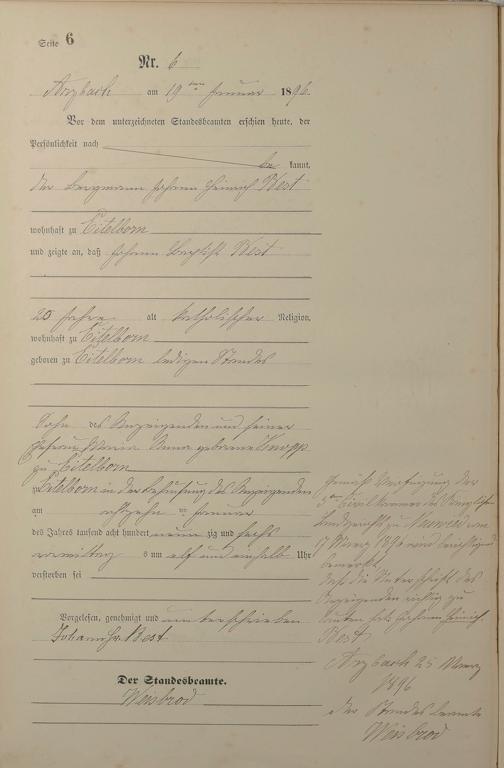 Seite 6
Nr. 6
Arzbach am 19ten Januar 1896.
Vor dem unterzeichneten Standesbeamten erschien heute, der
Persönlichkeit nach
be kannt,
der Bergmann Johann Heinrich Best
wohnhaft zu Eitelborn
und zeigte an, daß Johann Baptist Best
20 Jahre alt katholischer Religion,
wohnhaft zu Eitelborn
geboren zu Eitelborn ledigen Standes
Sohn des Anzeigenden und seiner
Ehefrau Maria Anna geborene Knopp
zu Eitelborn
zu Eitelborn in der Behausung des Anzeigenden
am achtzehn ten Januar
des Jahres tausend acht hundert neun zig und sechs
vormittag s um elf und einhalb Uhr
verstorben sei
Vorgelesen, genehmigt und unterschrieben
Johann Hr. Best
Der Standesbeamte.
Weisbrod
Gemäß Verfügung der
Civilkammer des Königlichen
Landgerichts zu Neuwied vom
17 März 1896 wird berichtigend
bemerkt
daß die Unterschrift des
Anzeigenden richtig zu
lauten hat Johann Heinrich
Best
Arzbach 25 März
1896
der Standesbeamte
Weisbrod